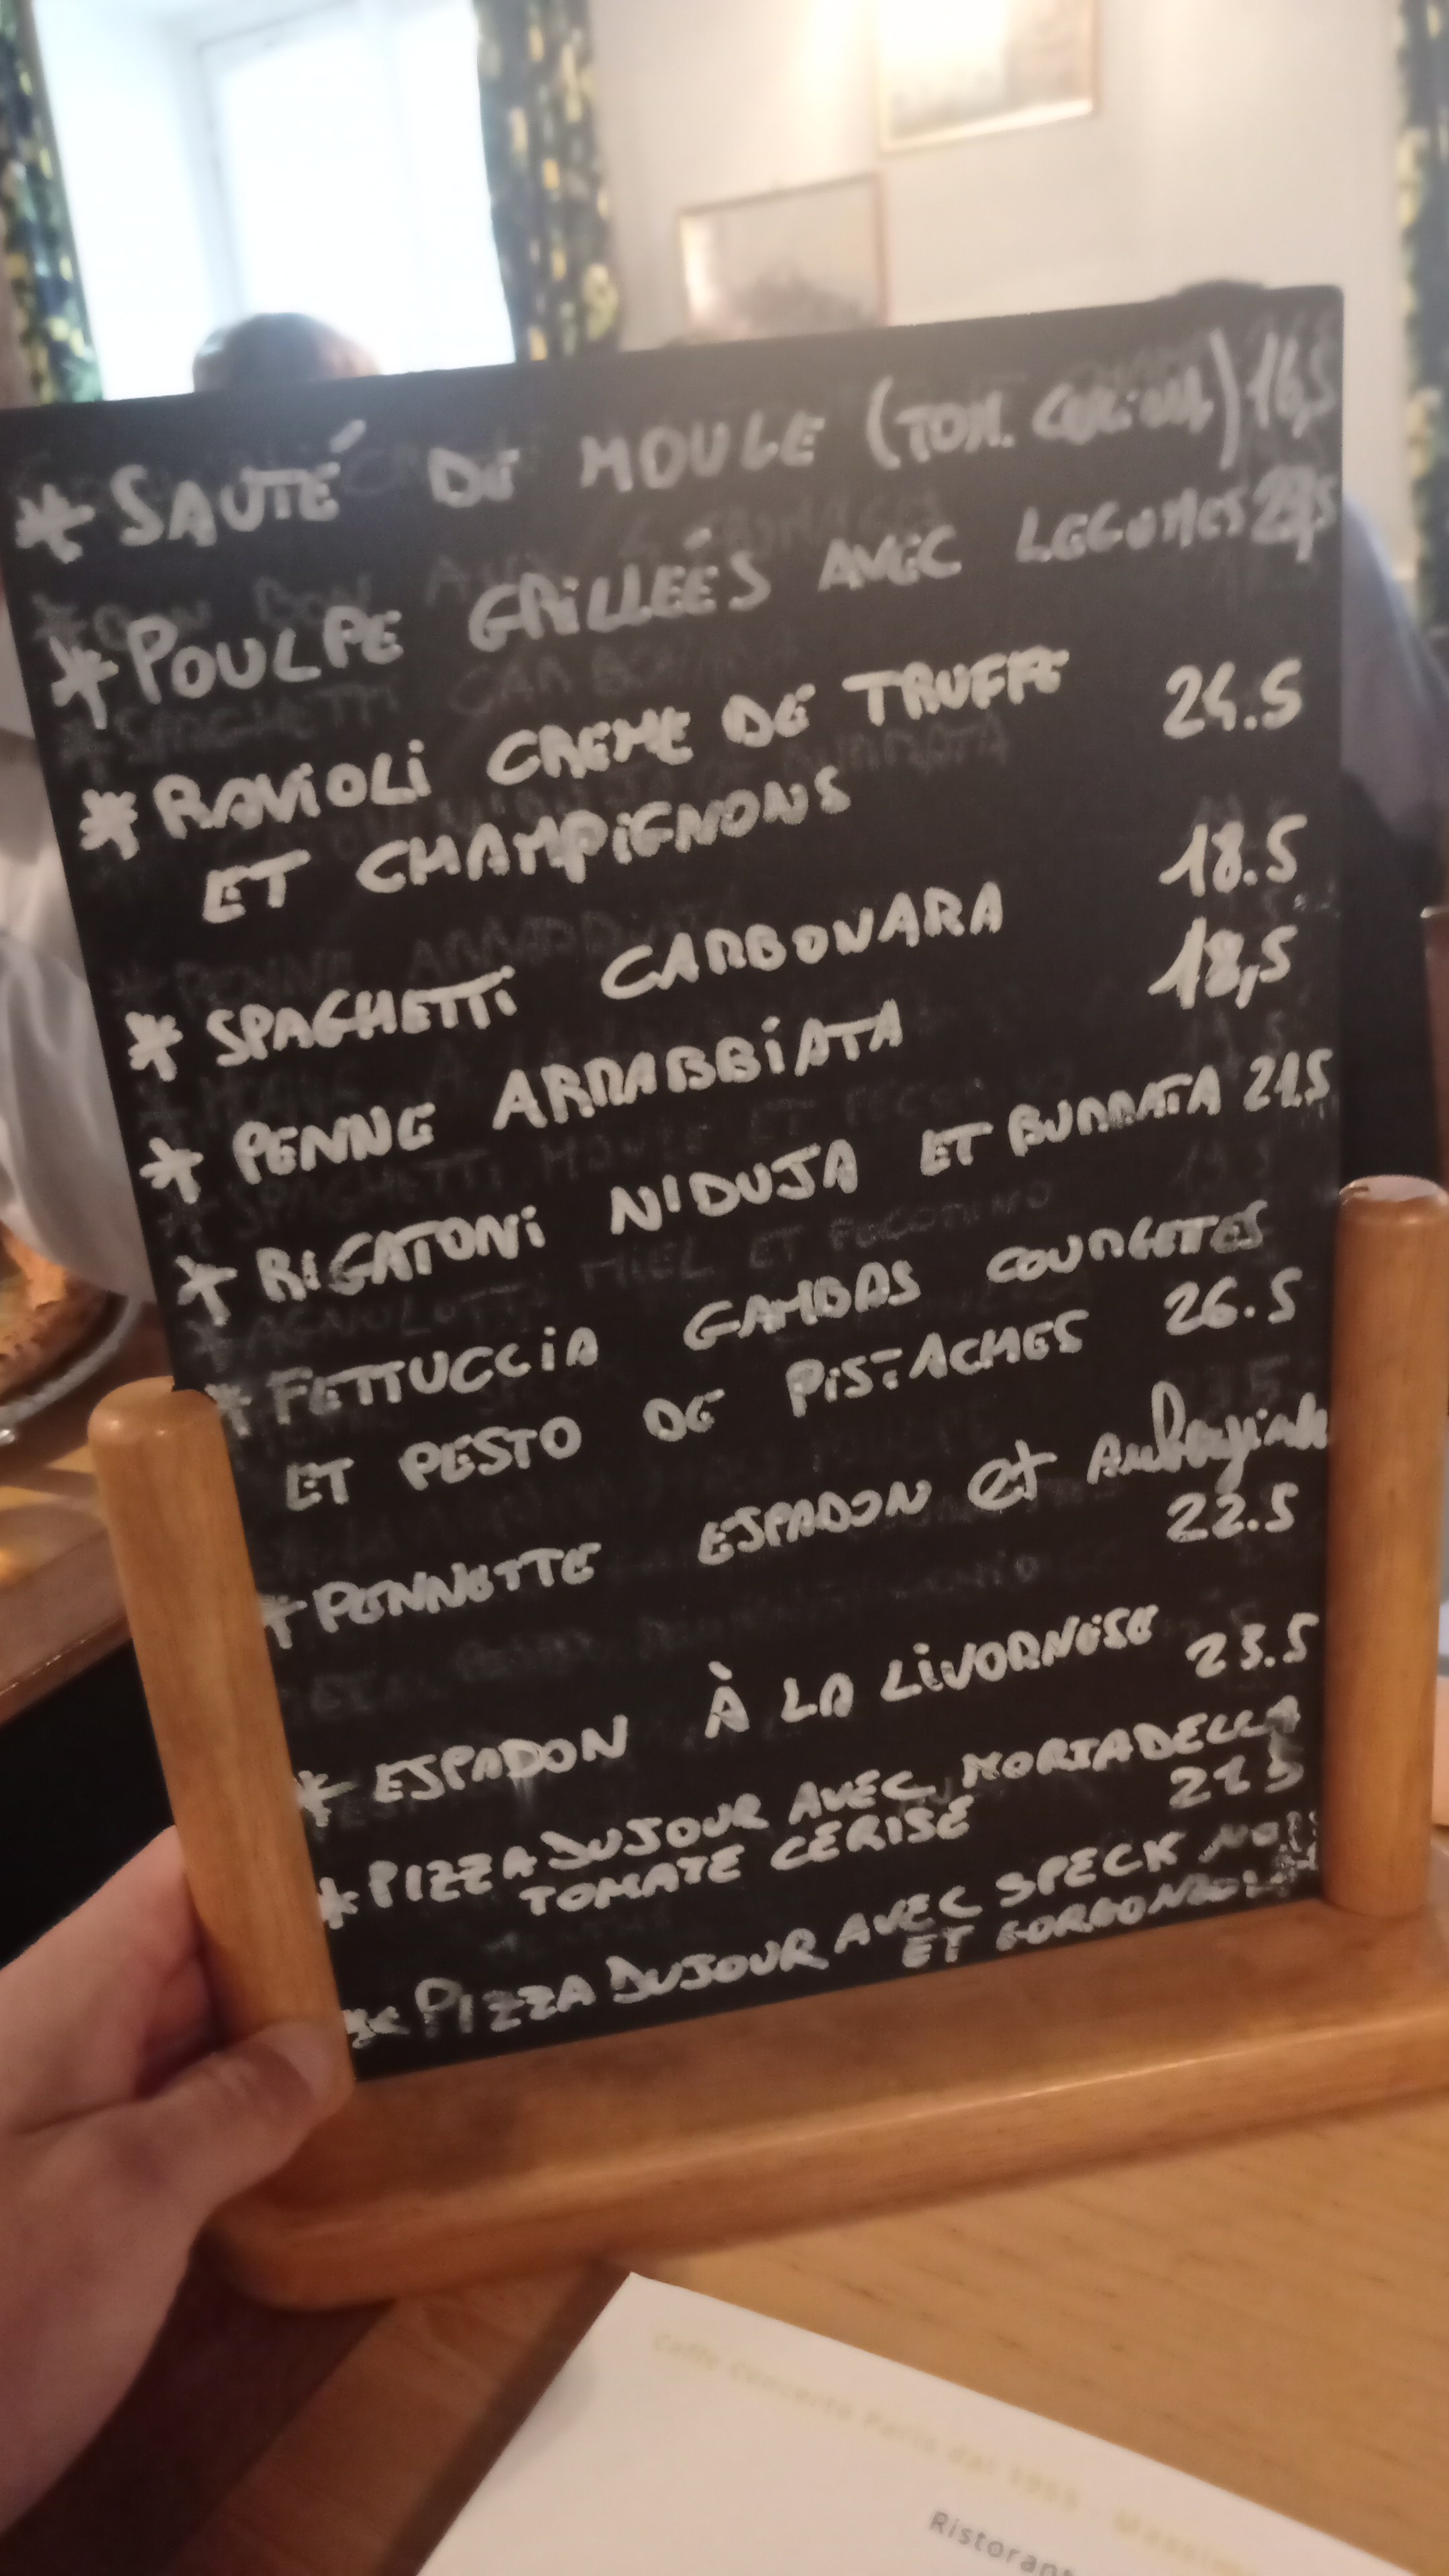 * SAUTÉ DE MOULE (TOM. CERISES) 16,5
* POULPE GRILLEÉS AVEC LEGUMES
* RAVIOLI CREME DE TRUFFE 24.5
ET CHAMPIGNONS
* SPAGHETTI CARBONARA 18.5
* PENNE ARRABBIATA 18,5
* RIGATONI N'DUJA ET BURRATA 21.5
* FETTUCCIA GAMBAS COURGETES
ET PESTO DE PISTACHES 26.5
* PENNETTE ESPADON et Aubergine
22.5
* ESPADON À LA LIVORNESE 23.5
* PIZZA DU JOUR AVEC MORTADELLA
TOMATE CERISE 21 5
* PIZZA DU JOUR AVEC SPECK
ET GORGONZOLA
Caffe Concerto Paris dal 1955
Ristorant